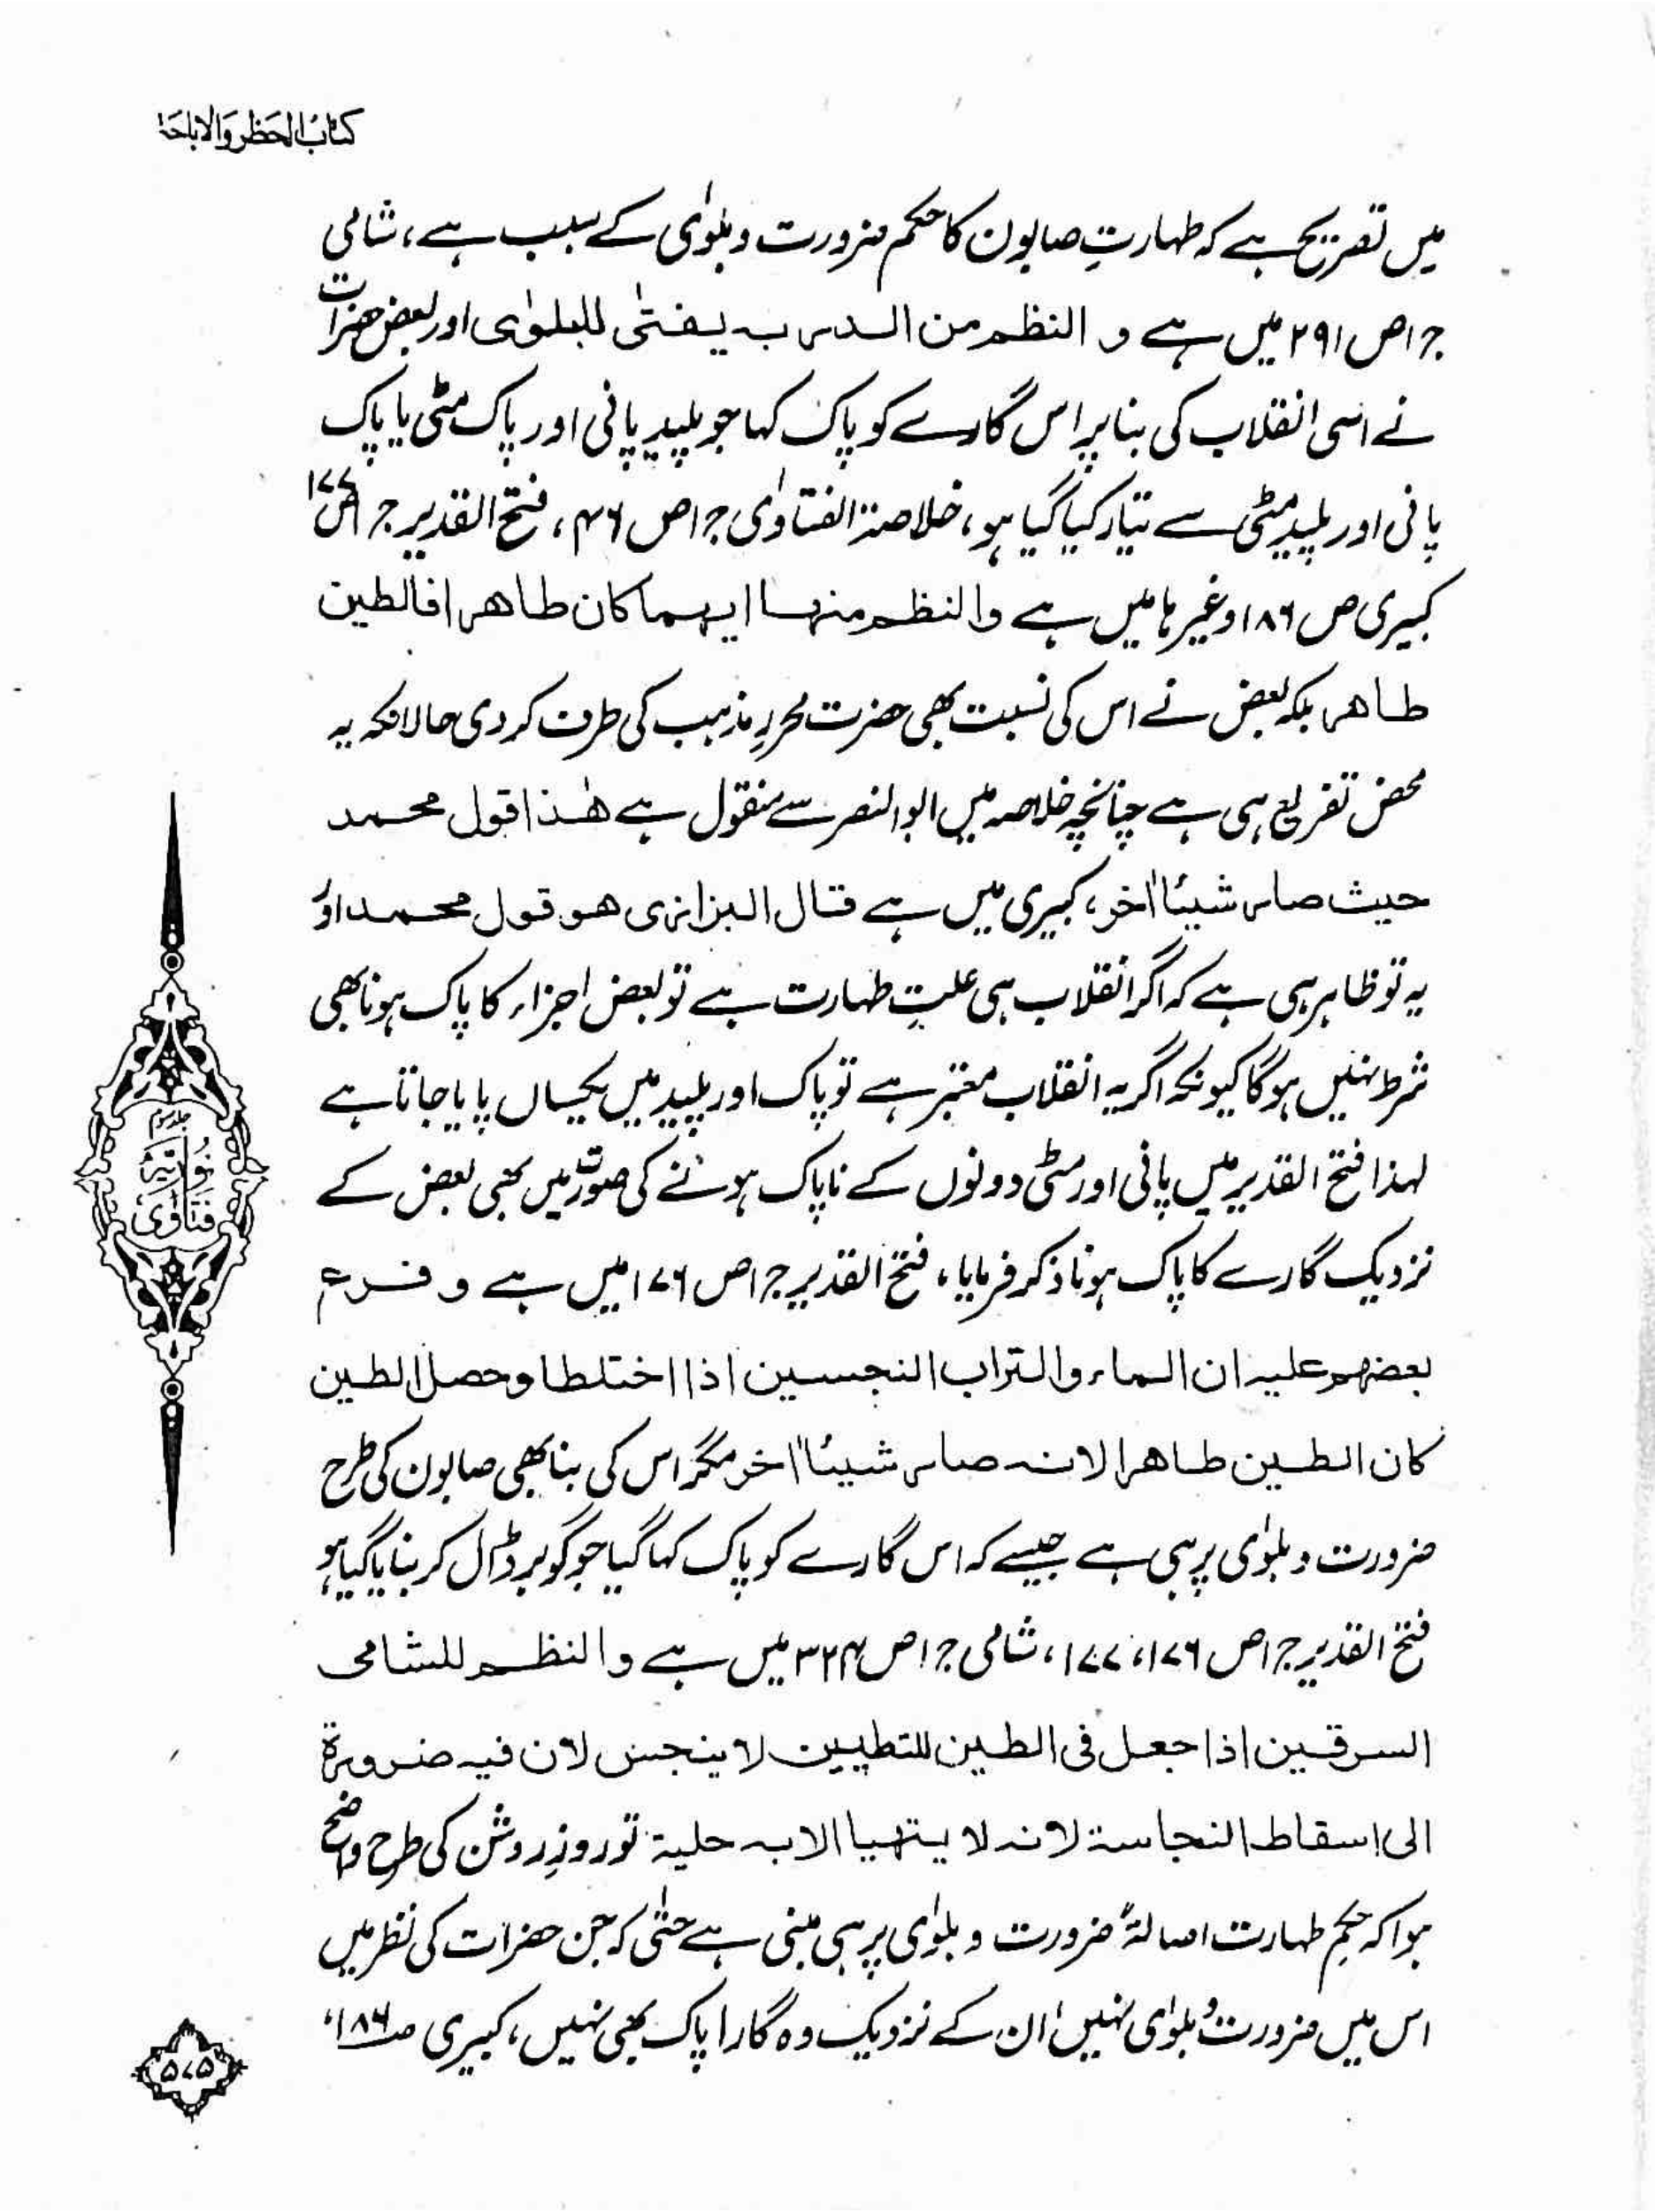 کتاب الحظر والاباحة
میں تصریح ہے کہ طہارتِ صابون کا حکم ضرورت و بلوٰی کے سبب ہے، شامی
ج ۱ ص ۲۹۱ میں ہے و النظم من الدر بہ یفتیٰ للبلوٰی اور بعض حضرات
نے اسی انقلاب کی بنا پر اس گارے کو پاک کہا جو پلید پانی اور پاک مٹی یا پاک
پانی اور پلید مٹی سے تیار کیا گیا ہو، خلاصۃ الفتاوٰی ج ۱ ص ۴۶، فتح القدیر ج ۱ ص ۱۷۷
کبیری ص ۱۸۶ وغیرہا میں ہے والنظم منہا ایہما کان طاہرا فالطین
طاہر بلکہ بعض نے اس کی نسبت بھی حضرت محررِ مذہب کی طرف کر دی حالانکہ یہ
محض تفریع ہی ہے چنانچہ خلاصہ میں ابوالنصر سے منقول ہے ھٰذا قول محمد
حیث صار شیئًا اٰخر، کبیری میں ہے قال البزازی ھو قول محمد اور
یہ تو ظاہر ہی ہے کہ اگر انقلاب ہی علتِ طہارت ہے تو بعض اجزاء کا پاک ہونا بھی
شرط نہیں ہوگا کیونکہ اگر یہ انقلاب معتبر ہے تو پاک اور پلید میں یکساں پایا جاتا ہے
لہذا فتح القدیر میں پانی اور مٹی دونوں کے ناپاک ہونے کی صورت میں بھی بعض کے
نزدیک گارے کا پاک ہونا ذکر فرمایا، فتح القدیر ج ۱ ص ۱۷۶ میں ہے و فرع
بعضہم علیہ ان الماء والتراب النجسین اذا اختلطا وحصل الطین
کان الطین طاہرا لانہ صار شیئًا اٰخر مگر اس کی بنا بھی صابون کی طرح
ضرورت و بلوٰی پر ہی ہے جیسے کہ اس گارے کو پاک کہا گیا جو گوبر ڈال کر بنایا گیا ہو
فتح القدیر ج ۱ ص ۱۷۶، ۱۷۷، شامی ج ۱ ص ۳۲۴ میں ہے والنظم للشامی
السرقین اذا جعل فی الطین للتطیین لا ینجس لان فیہ ضرورۃ
الی اسقاط النجاسۃ لانہ لا یتہیا الا بہ حلیۃ تو روزِ روشن کی طرح واضح
ہوا کہ حکمِ طہارت اصالۃً ضرورت و بلوٰی پر ہی مبنی ہے حتیٰ کہ جن حضرات کی نظر میں
اس میں ضرورت و بلوٰی نہیں ان کے نزدیک وہ گارا پاک بھی نہیں، کبیری صـ ۱۸۶،
نوریہ
فتاوٰی
۵۷۵